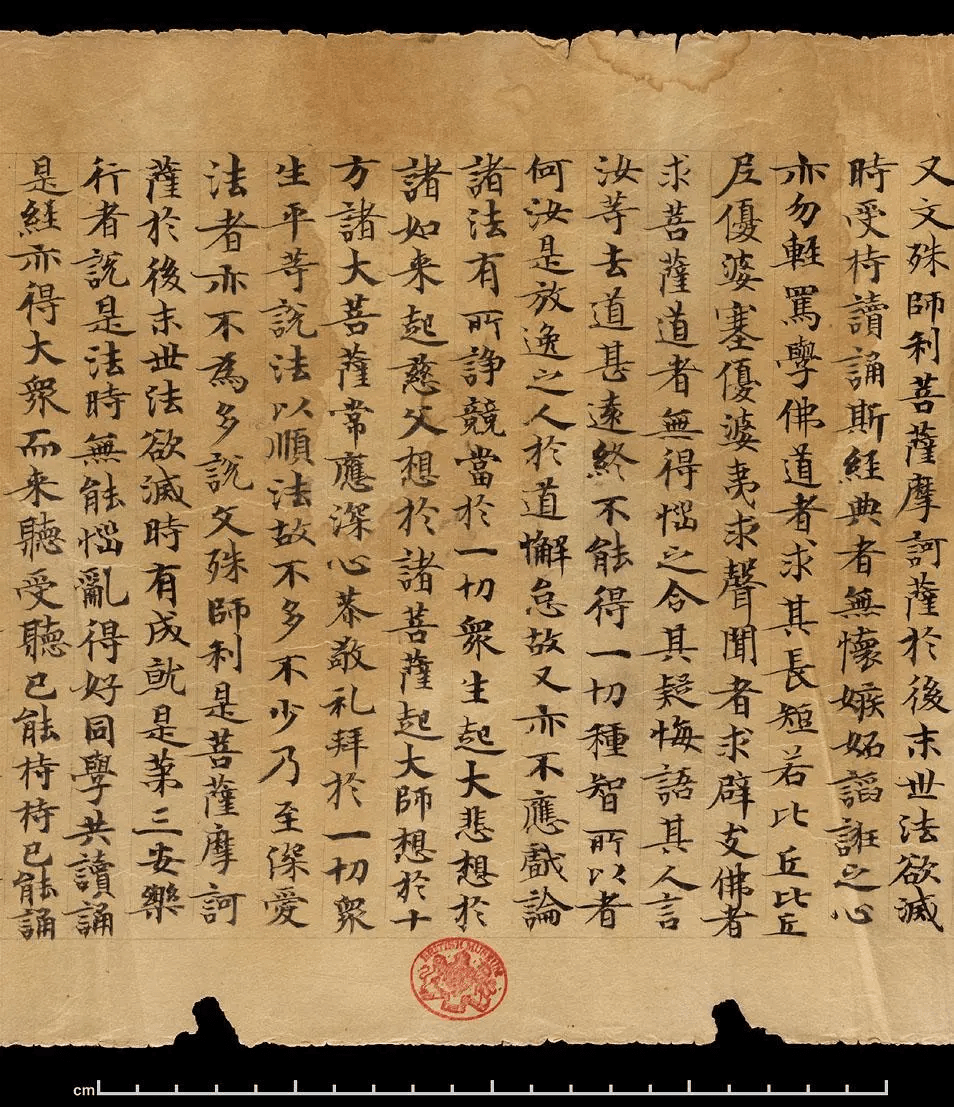 又文殊師利菩薩摩訶薩於後末世法欲滅
時受持讀誦斯經典者無懷嫉妬謟誑之心
亦勿輕罵學佛道者求其長短若比丘比丘
尼優婆塞優婆夷求聲聞者求辟支佛者
求菩薩道者無得惱之令其疑悔語其人言
汝等去道甚遠終不能得一切種智所以者
何汝是放逸之人於道懈怠故又亦不應戲論
諸法有所諍競當於一切眾生起大悲想於
諸如来起慈父想於諸菩薩起大師想於十
方諸大菩薩常應深心恭敬礼拜於一切眾
生平等說法以順法故不多不少乃至深愛
法者亦不為多說文殊師利是菩薩摩訶
薩於後末世法欲滅時有成就是第三安樂
行者說是法時無能惱亂得好同學共讀誦
是經亦得大眾而来聽受聽已能持持已能誦
BRITISH MUSEUM
cm